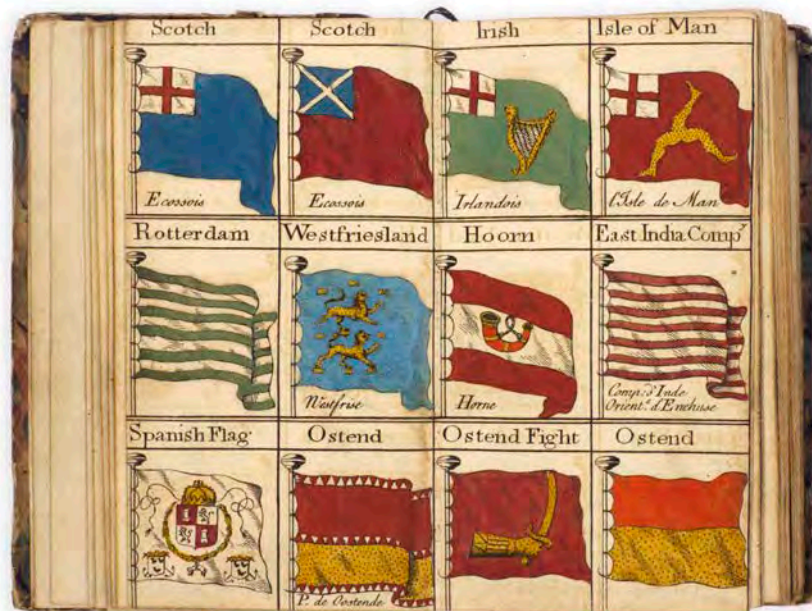 Scotch
Scotch
Irish
Isle of Man
Ecossois
Ecossois
Irlandois
l'Isle de Man
Rotterdam
Westfriesland
Hoorn
East India Comp.y
Westfrise
Horne
Comp. d'Inde
Orient.e d'Enchuse
Spanish Flag
Ostend
Ostend Fight
Ostend
P. de Oostende